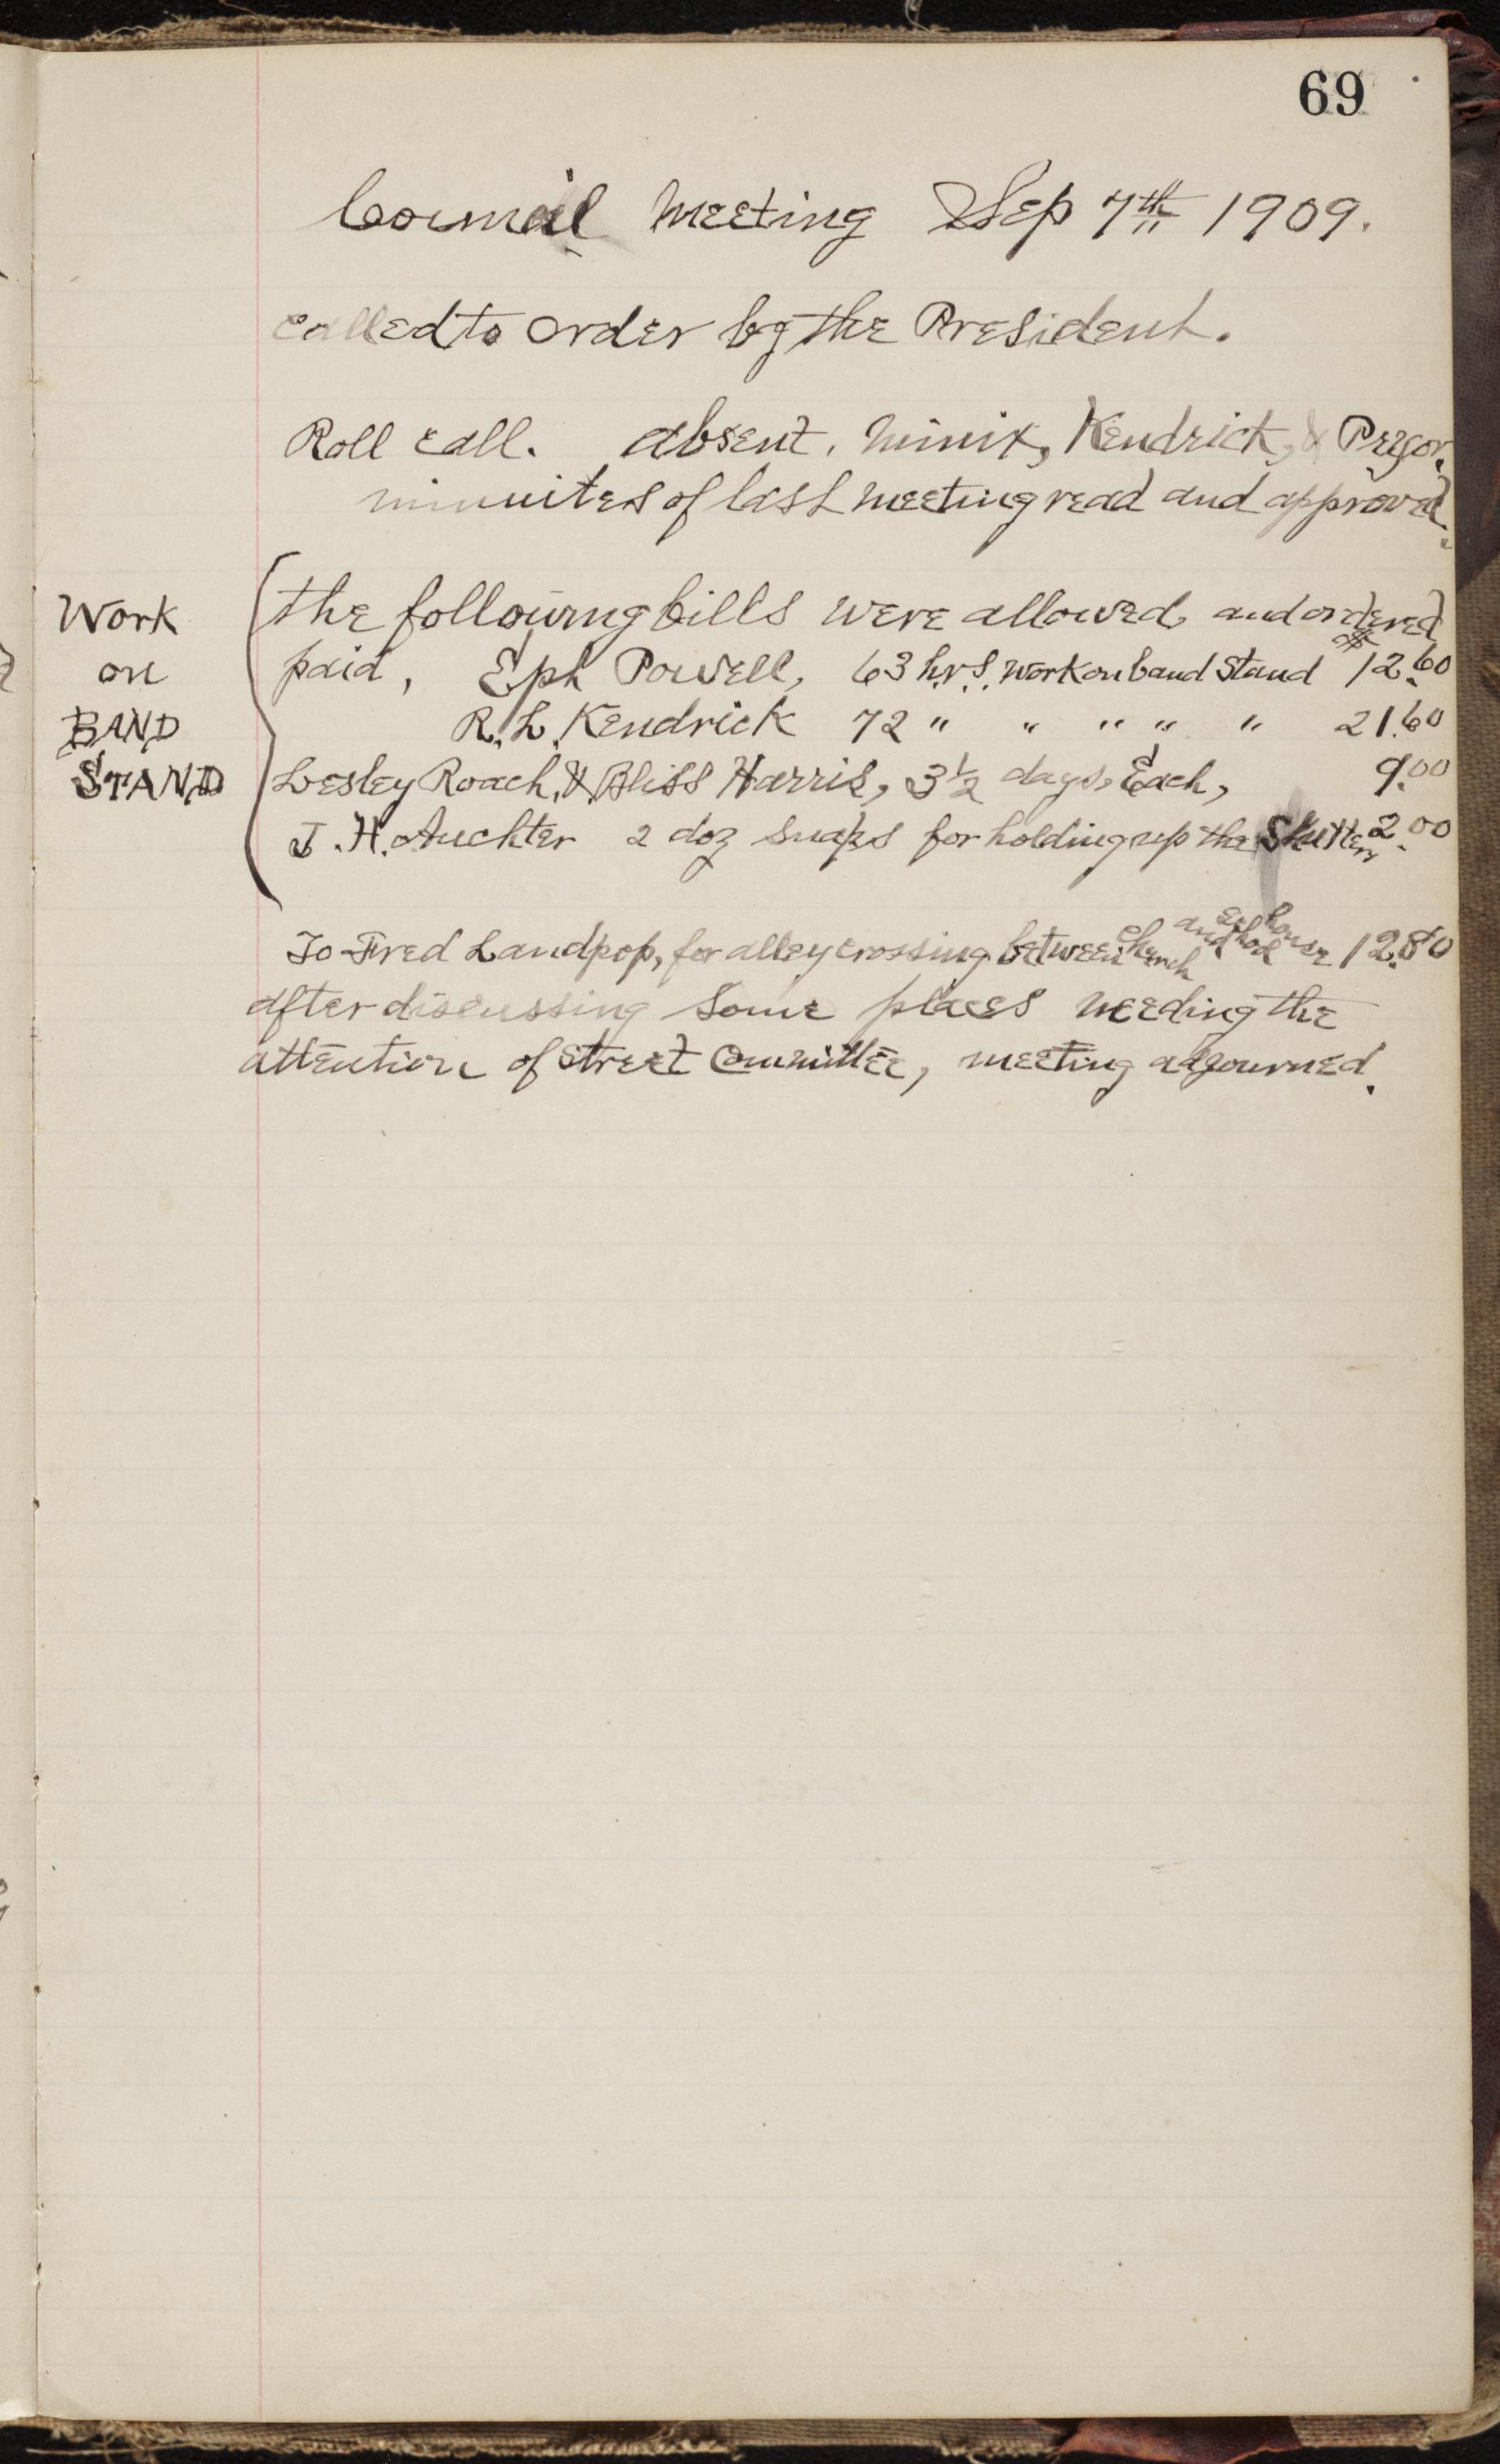 69
Council meeting Sep 7th 1909.
called to order by the President.
Roll call. absent, Minix, Kendrick, & Pryor,
minuites of last meeting read and approved.
Work
on
BAND
STAND
the following bills were allowed and ordered
paid, Eph Powell, 63 hrs. work on band stand $12.60
R. L. Kendrick 72 " " " " " 21.60
Lesley Roach, & Bliss Harris, 3½ days, Each, 9.00
J. H. Auchter 2 doz snaps for holding up the Shutters 2.00
To Fred Landpop, for alley crossing between church and school house 12.80
after discussing some places needing the
attention of street Committee, meeting adjourned.